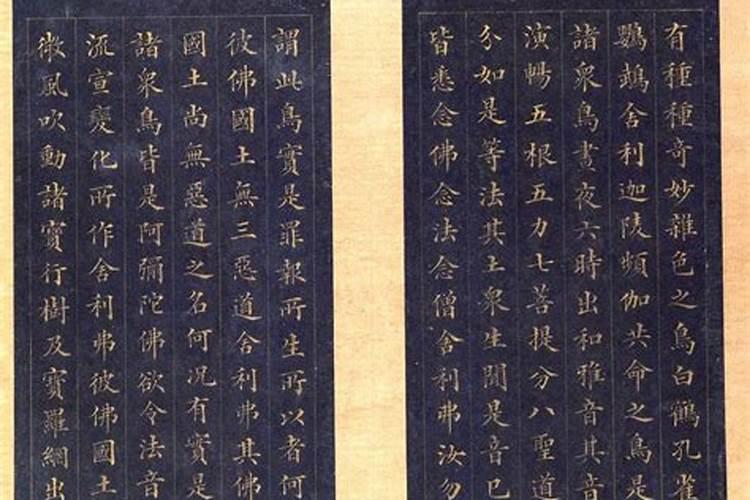 有種種奇妙雜色之鳥白鶴孔雀
鸚鵡舍利迦陵頻伽共命之鳥是
諸衆鳥晝夜六時出和雅音其音
演暢五根五力七菩提分八聖道
分如是等法其土衆生聞是音已
皆悉念佛念法念僧舍利弗汝勿
謂此鳥實是罪報所生所以者何
彼佛國土無三惡道舍利弗其佛
國土尚無惡道之名何况有實是
諸衆鳥皆是阿彌陀佛欲令法音
流宣變化所作舍利弗彼佛國土
微風吹動諸寶行樹及寶羅網出